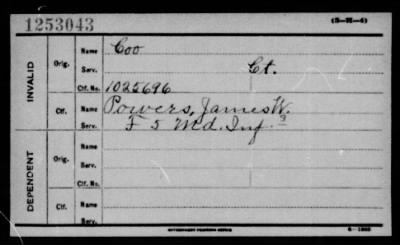 1253043 (3-H-4)
INVALID
Orig.
Name Coo
Serv. Ct.
Ctf. No. 1025696
Ctf.
Name Powers, James W.
Serv. F 5 Md. Inf.
DEPENDENT
Orig.
Name
Serv.
Ctf. No.
Ctf.
Name
Serv.
GOVERNMENT PRINTING OFFICE